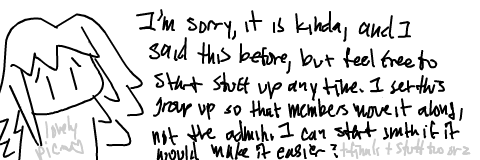 I'm sorry, it is kinda, and I
said this before, but feel free to
start stuff up any time. I set this
group up so that members move it along,
not the admin. I can start smth if it
would make it easier?
lovely
picm